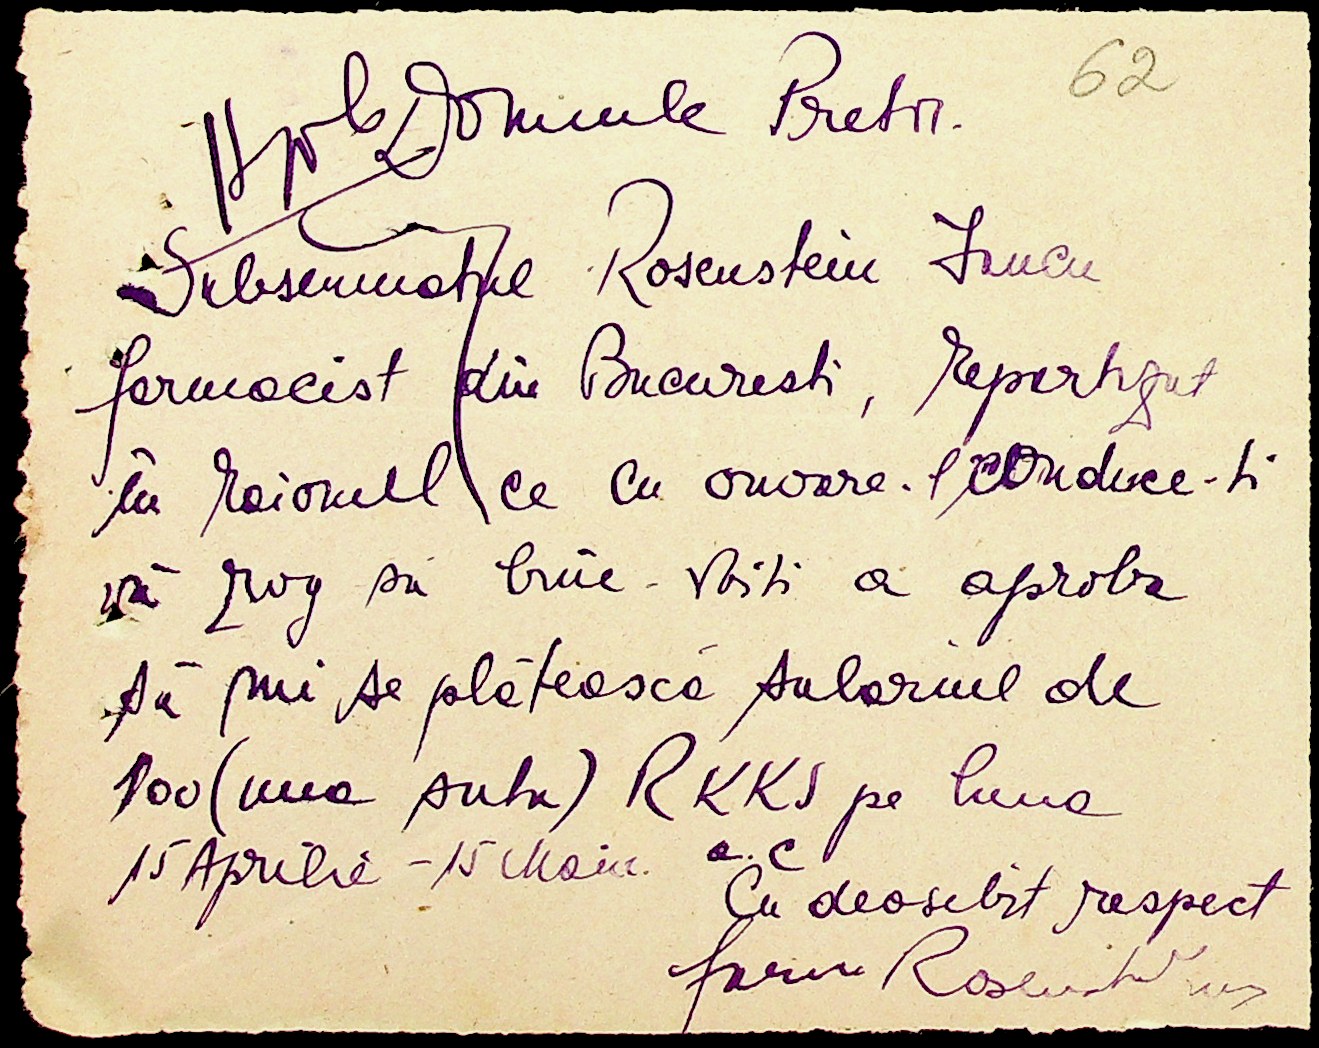 62
Aprob
Domnule Pretor.
Subsemnatul Rosenstein Iancu
farmacist din Bucuresti, repartizat
în raionul ce cu onoare-l conduce-ti
vă rog să bine-voiti a aproba
să mi se plătească salariul de
100 (una suta) RKKS pe luna
15 Aprilie - 15 Maiu. a.c
Cu deosebit respect
farm Rosenstein